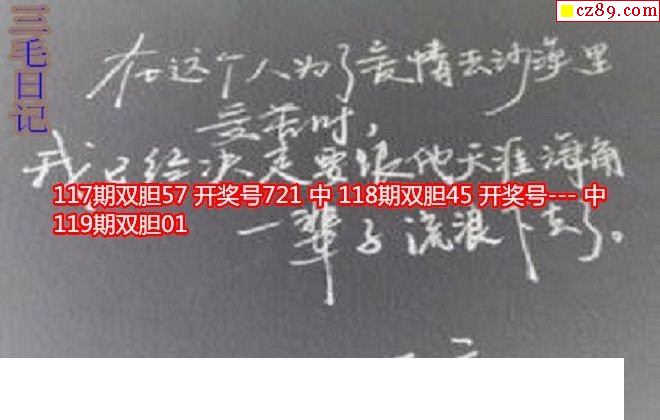 cz89.com
三毛日记
在这个人为了爱情去沙漠里
受苦时，
我已经决定要跟他天涯海角
117期双胆57 开奖号721 中 118期双胆45 开奖号--- 中
119期双胆01
一辈子流浪下去了。